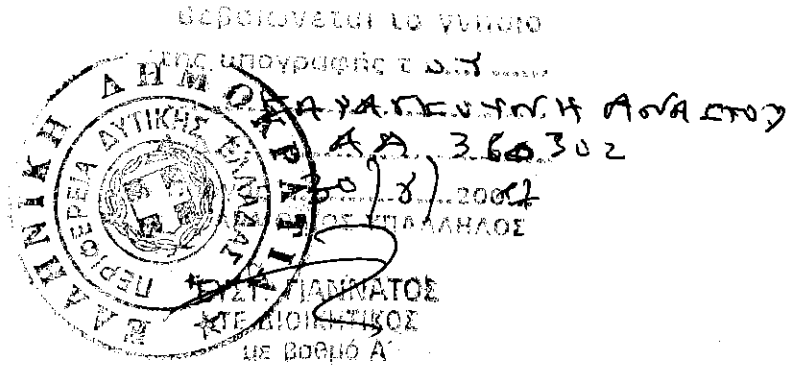 Βεβαιώνεται το γνήσιο
της υπογραφής τ ου
ΑΑ 360302
30/8/2007
ΥΠΑΛΛΗΛΟΣ
ΕΥΣΤ. ΓΙΑΝΝΑΤΟΣ
ΤΕ ΔΙΟΙΚΗΤΙΚΟΣ
με βαθμό Α΄
ΕΛΛΗΝΙΚΗ ΔΗΜΟΚΡΑΤΙΑ
ΠΕΡΙΦΕΡΕΙΑ ΔΥΤΙΚΗΣ ΕΛΛΑΔΑΣ